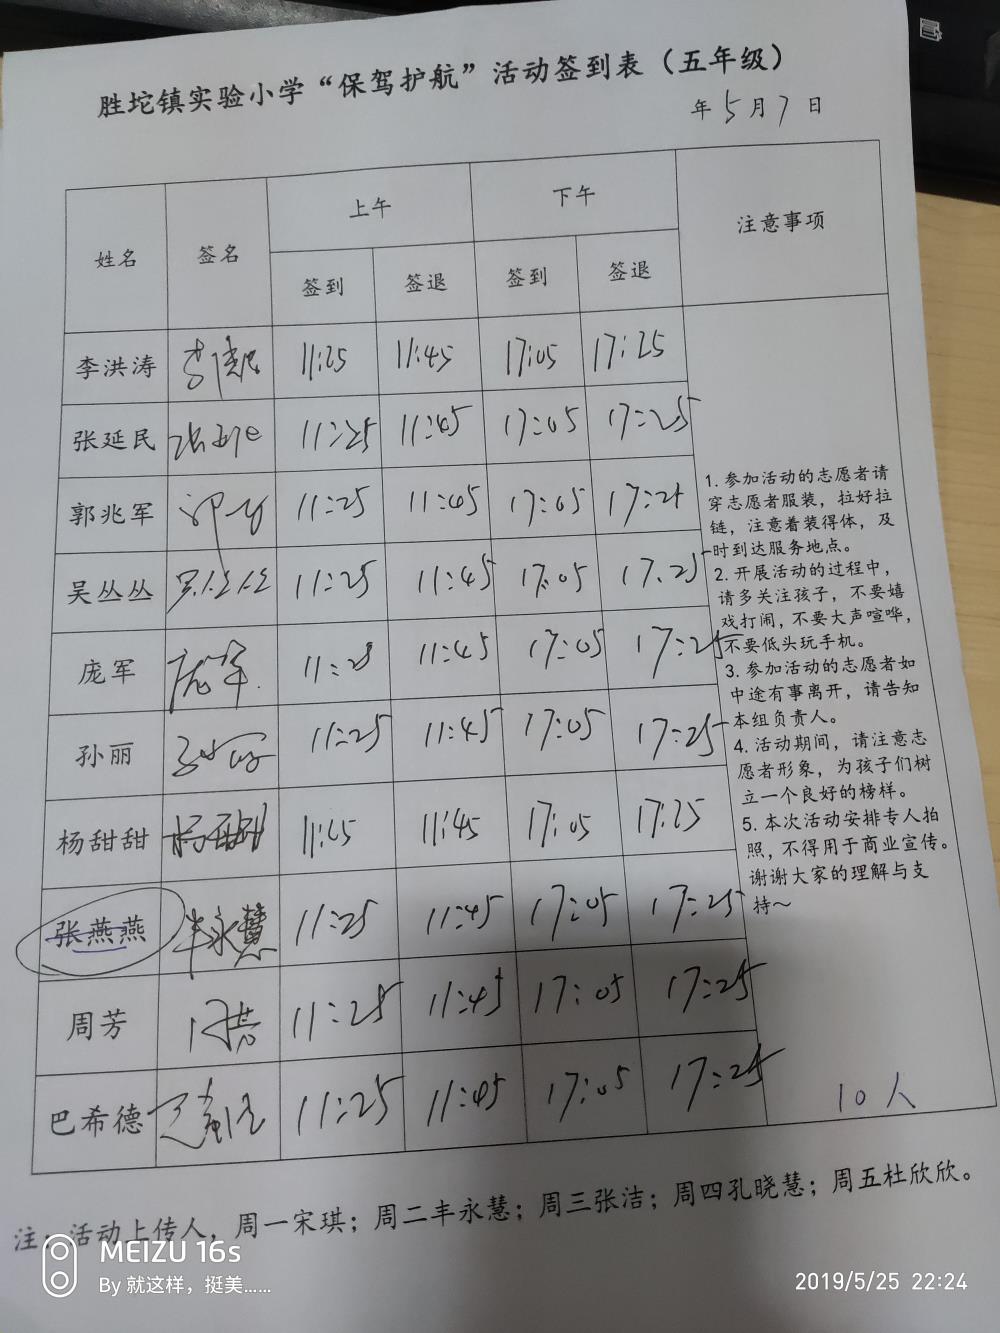 胜坨镇实验小学“保驾护航”活动签到表（五年级）
年 5 月 7 日
姓名 签名 上午 下午 注意事项
签到 签退 签到 签退
李洪涛 11:25 11:45 17:05 17:25
张延民 张延民 11:25 11:45 17:05 17:25
郭兆军 11:25 11:45 17:05 17:25
吴丛丛 吴丛丛 11:25 11:45 17:05 17.25
庞军 庞军 11:25 11:45 17:05 17:25
孙丽 11:25 11:45 17:05 17:25
杨甜甜 杨甜甜 11:25 11:45 17:05 17:25
张燕燕 丰永慧 11:25 11:45 17:05 17:25
周芳 周芳 11:25 11:45 17:05 17:25
巴希德 11:25 11:45 17:05 17:25
1. 参加活动的志愿者请
穿志愿者服装，拉好拉
链，注意着装得体，及
时到达服务地点。
2. 开展活动的过程中，
请多关注孩子，不要嬉
戏打闹，不要大声喧哗，
不要低头玩手机。
3. 参加活动的志愿者如
中途有事离开，请告知
本组负责人。
4. 活动期间，请注意志
愿者形象，为孩子们树
立一个良好的榜样。
5. 本次活动安排专人拍
照，不得用于商业宣传。
谢谢大家的理解与支
持～
10人
注：活动上传人，周一宋琪；周二丰永慧；周三张洁；周四孔晓慧；周五杜欣欣。
MEIZU 16s
By 就这样，挺美......
2019/5/25 22:24